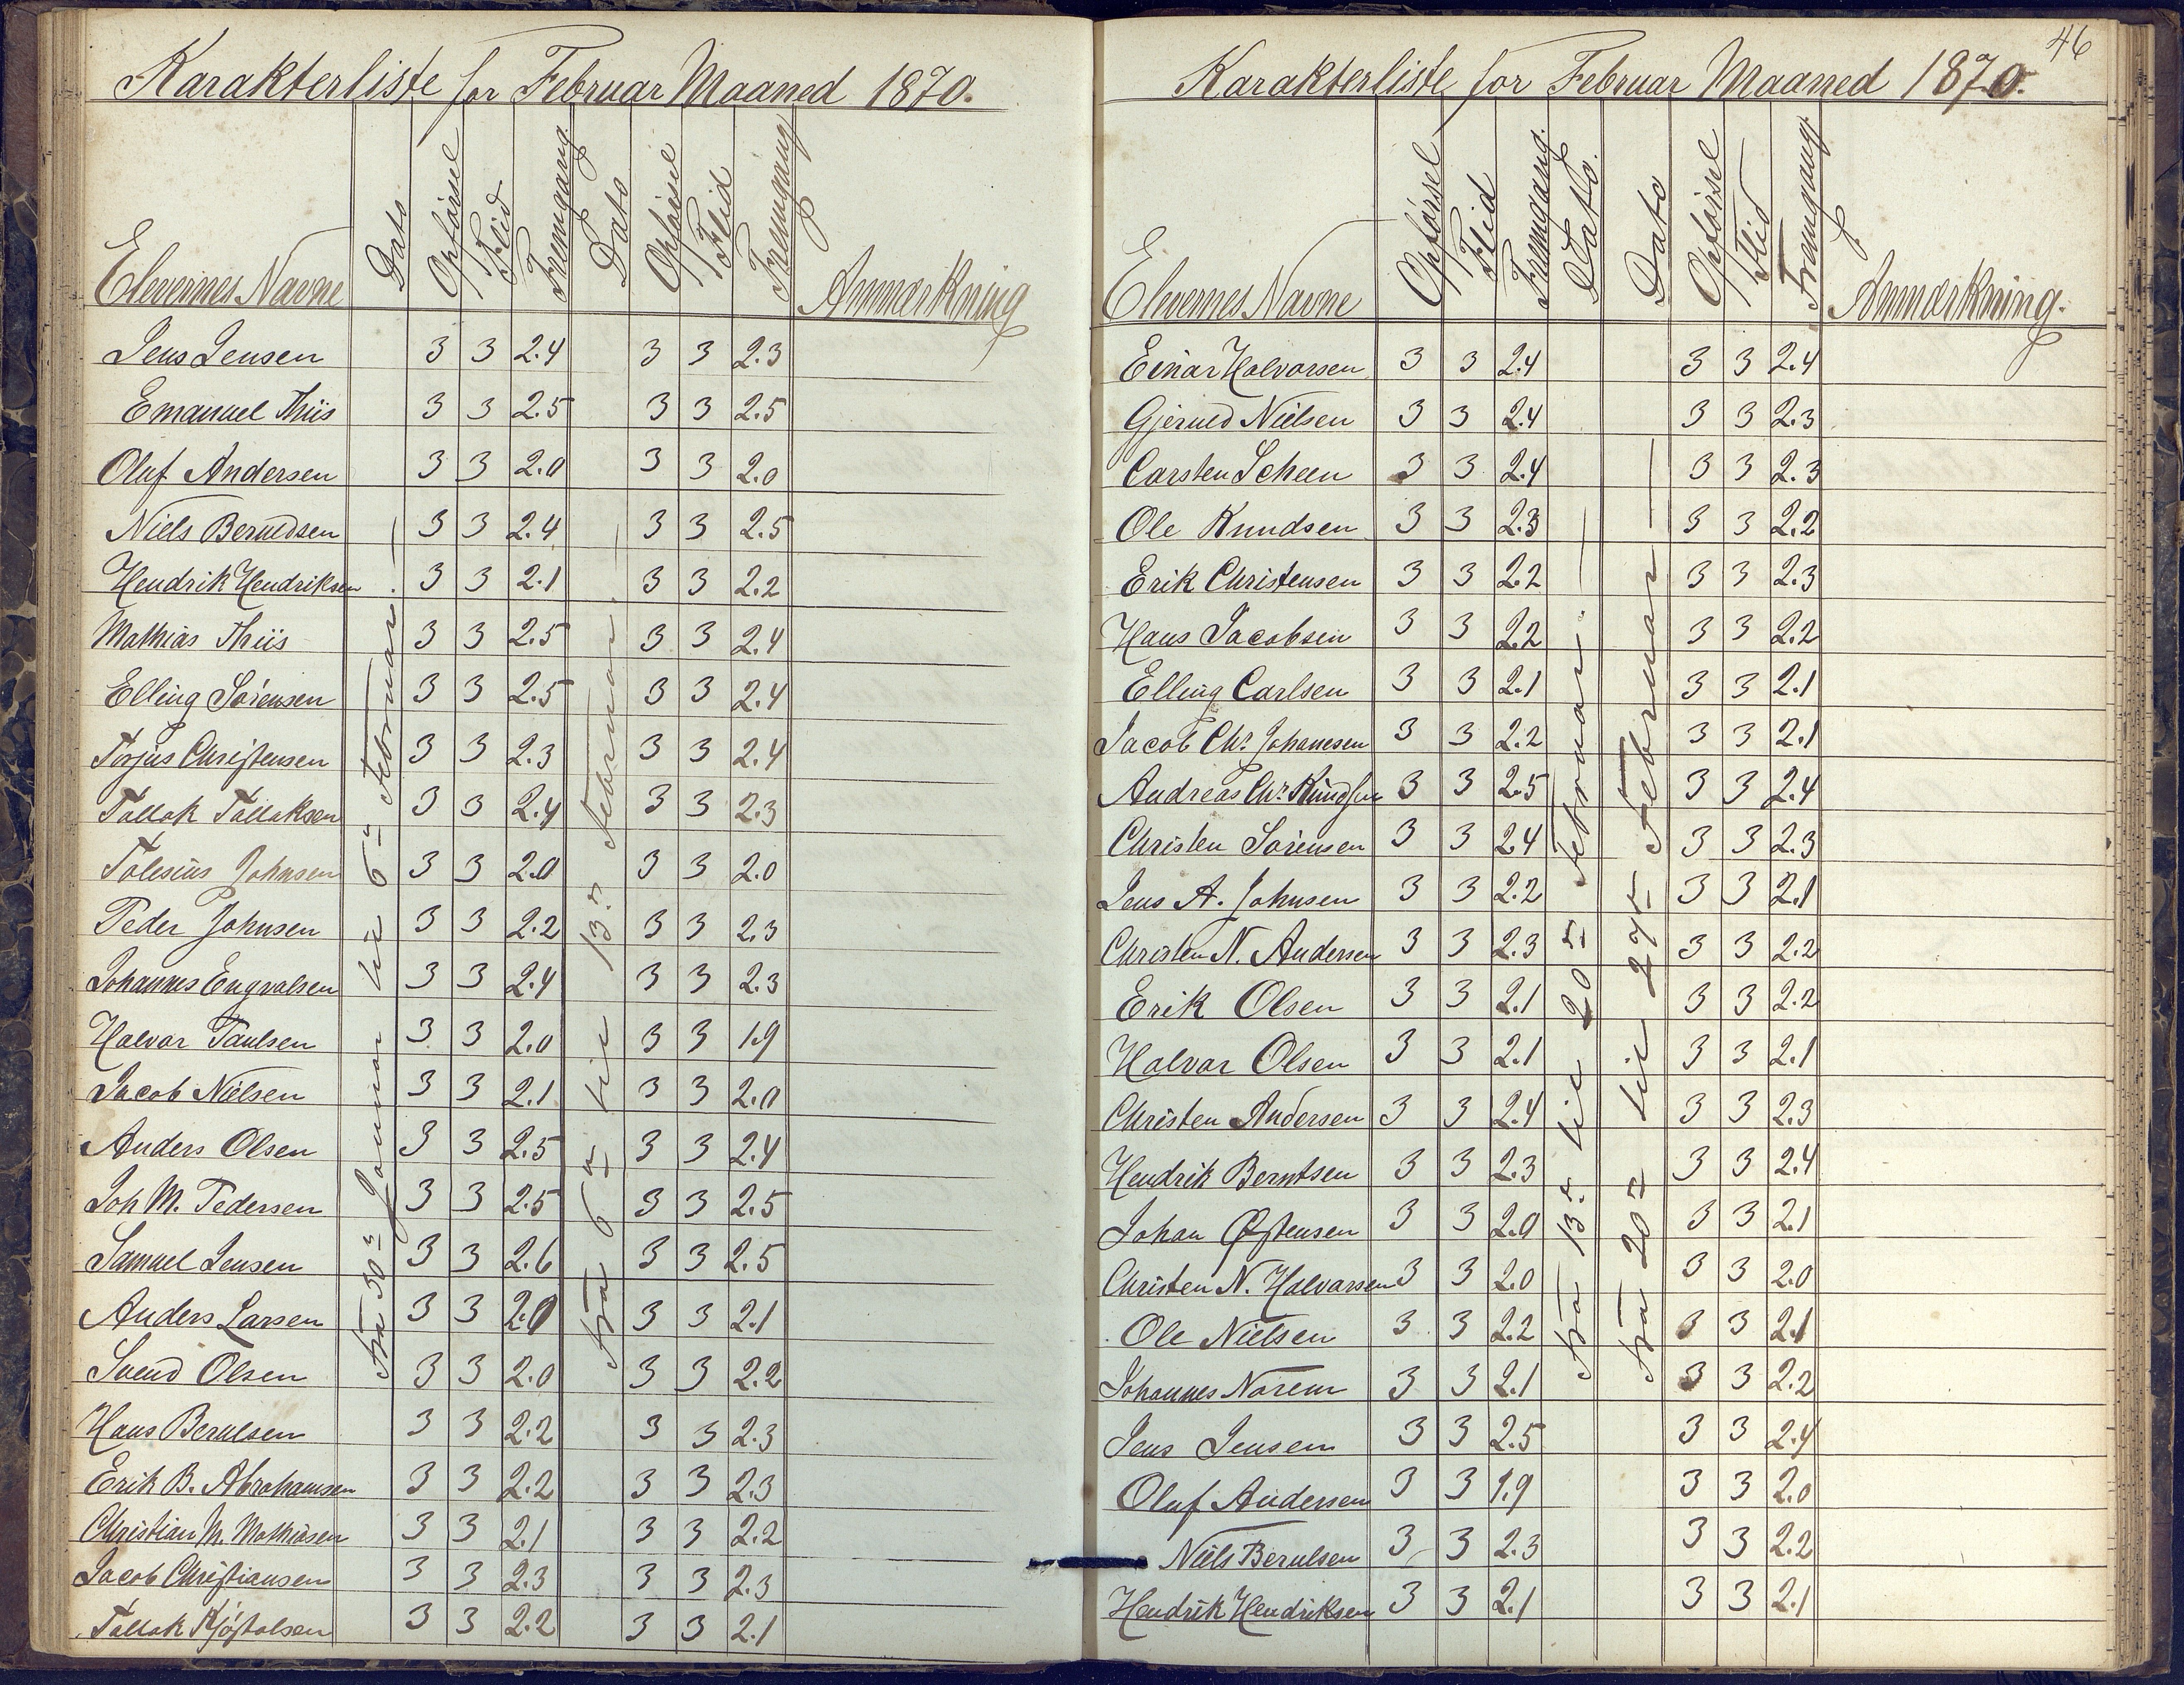 Karakterliste for Februar Maaned 1870.
Elevernes Navne Dato Opførsel Flid Fremgang. Dato Opførsel Flid Fremgang Anmærkning
fra 30te Januar til 6te Februar.
fra 6te til 13de Februar.
Jens Jensen 3 3 2.4 3 3 2.3
Emanuel Thiis 3 3 2.5 3 3 2.5
Oluf Andersen 3 3 2.0 3 3 2.0
Niels Berntsen 3 3 2.4 3 3 2.5
Hendrik Hendriksen 3 3 2.1 3 3 2.2
Mathias Thiis 3 3 2.5 3 3 2.4
Elling Sørensen 3 3 2.5 3 3 2.4
Torjus Christensen 3 3 2.3 3 3 2.4
Tallak Tallaksen 3 3 2.4 3 3 2.3
Johnsen 3 3 2.0 3 3 2.0
Peder Johnsen 3 3 2.2 3 3 2.3
Johannes Engvalsen 3 3 2.4 3 3 2.3
Halvor Paulsen 3 3 2.0 3 3 1.9
Jacob Nielsen 3 3 2.1 3 3 2.0
Anders Olsen 3 3 2.5 3 3 2.4
Joh M. Pedersen 3 3 2.5 3 3 2.5
Samuel Jensen 3 3 2.6 3 3 2.5
Anders Larsen 3 3 2.0 3 3 2.1
Svend Olsen 3 3 2.0 3 3 2.2
Hans Berntsen 3 3 2.2 3 3 2.3
Erik B. Abrahamsen 3 3 2.2 3 3 2.3
Christian M. Mathiasen 3 3 2.1 3 3 2.2
Jacob Christiansen 3 3 2.3 3 3 2.3
Tallak Kjøstolsen 3 3 2.2 3 3 2.1
46
Karakterliste for Februar Maaned 1870.
Elevernes Navne Opførsel Flid Fremgang. Dato. Dato Opførsel Flid Fremgang Anmærkning.
fra 13de til 20de Februar.
fra 20de til 27de Februar
Einar Halvorsen 3 3 2.4 3 3 2.4
Gjerued Nielsen 3 3 2.4 3 3 2.3
Carsten Scheen 3 3 2.4 3 3 2.3
Ole Knudsen 3 3 2.3 3 3 2.2
Erik Christensen 3 3 2.2 3 3 2.3
Hans Jacobsen 3 3 2.2 3 3 2.2
Elling Carlsen 3 3 2.1 3 3 2.1
Jacob Chr. Johanesen 3 3 2.2 3 3 2.1
Andreas Chr. Knudsen 3 3 2.5 3 3 2.4
Christen Sørensen 3 3 2.4 3 3 2.3
Jens A. Johnsen 3 3 2.2 3 3 2.1
Christen N. Andersen 3 3 2.3 3 3 2.2
Erik Olsen 3 3 2.1 3 3 2.2
Halvor Olsen 3 3 2.1 3 3 2.1
Christen Andersen 3 3 2.4 3 3 2.3
Hendrik Berntsen 3 3 2.3 3 3 2.4
Johan Østensen 3 3 2.0 3 3 2.1
Christen N. Halvorsen 3 3 2.0 3 3 2.0
Ole Nielsen 3 3 2.2 3 3 2.1
Johannes Norem 3 3 2.1 3 3 2.2
Jens Jensen 3 3 2.5 3 3 2.4
Oluf Andersen 3 3 1.9 3 3 2.0
Niels Berntsen 3 3 2.3 3 3 2.2
Hendrik Hendriksen 3 3 2.1 3 3 2.1